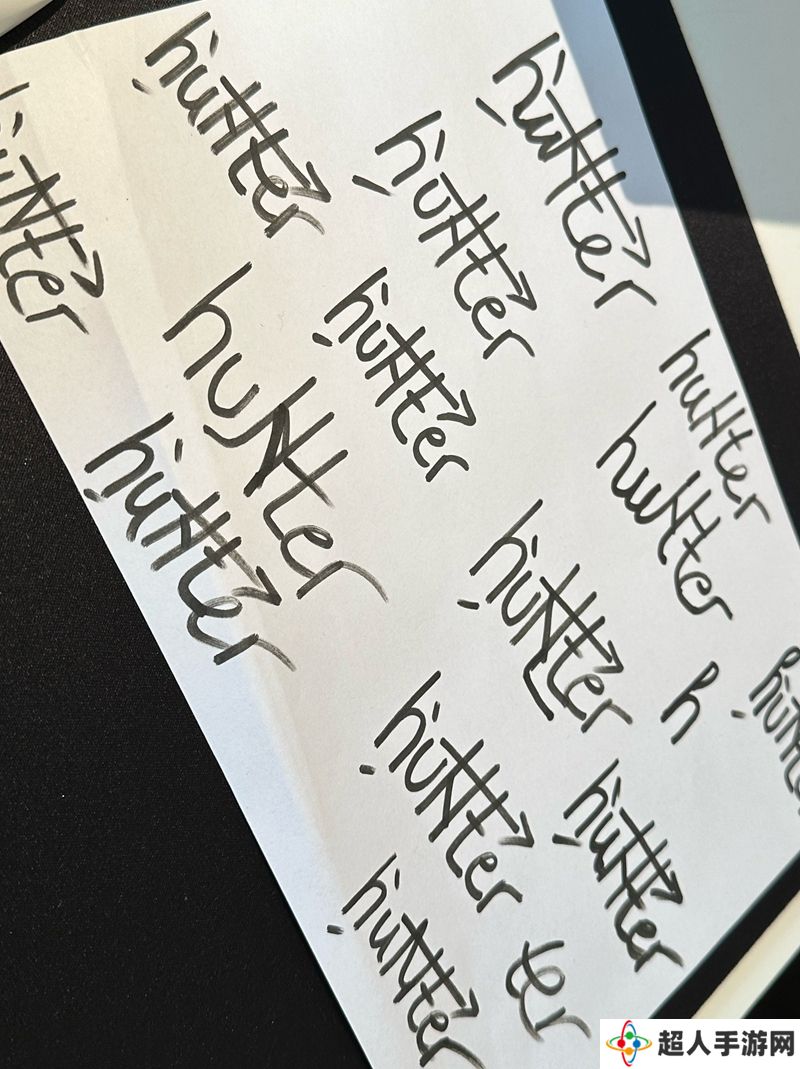 hunter
hunter
hunter
hunter
hunter
hunter
hunter
hunter
hunter
hunter
hunter
h
hunter
hunter
hunter
ter
超人手游网